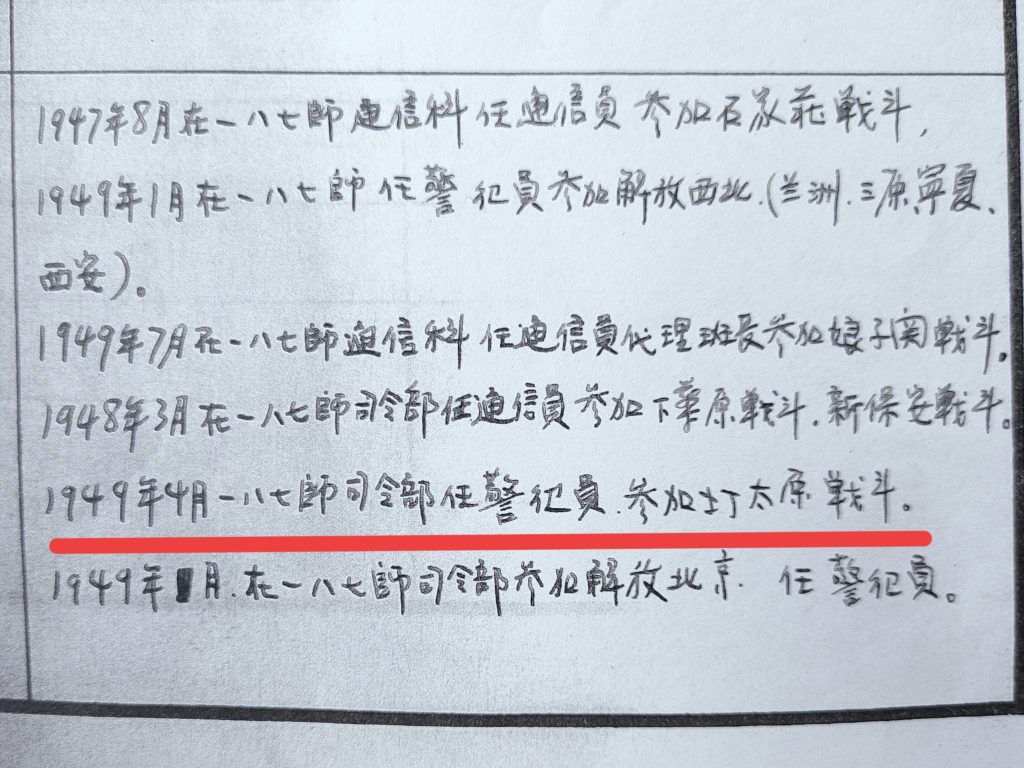 1947年8月在一八七師通信科 任通信員 参加石家莊戰斗,
1949年1月在一八七師 任警衛員参加解放西北.(兰洲.三原.寧夏、
西安)。
1949年7月在一八七師通信科 任通信員代理班長参加娘子関戰斗。
1948年3月在一八七師司令部任通信員参加下華原戰斗.新保安戰斗。
1949年4月一八七師司令部任警衛員.参加打太原戰斗。
1949年 月.在一八七師司令部参加解放北京. 任警衛員。